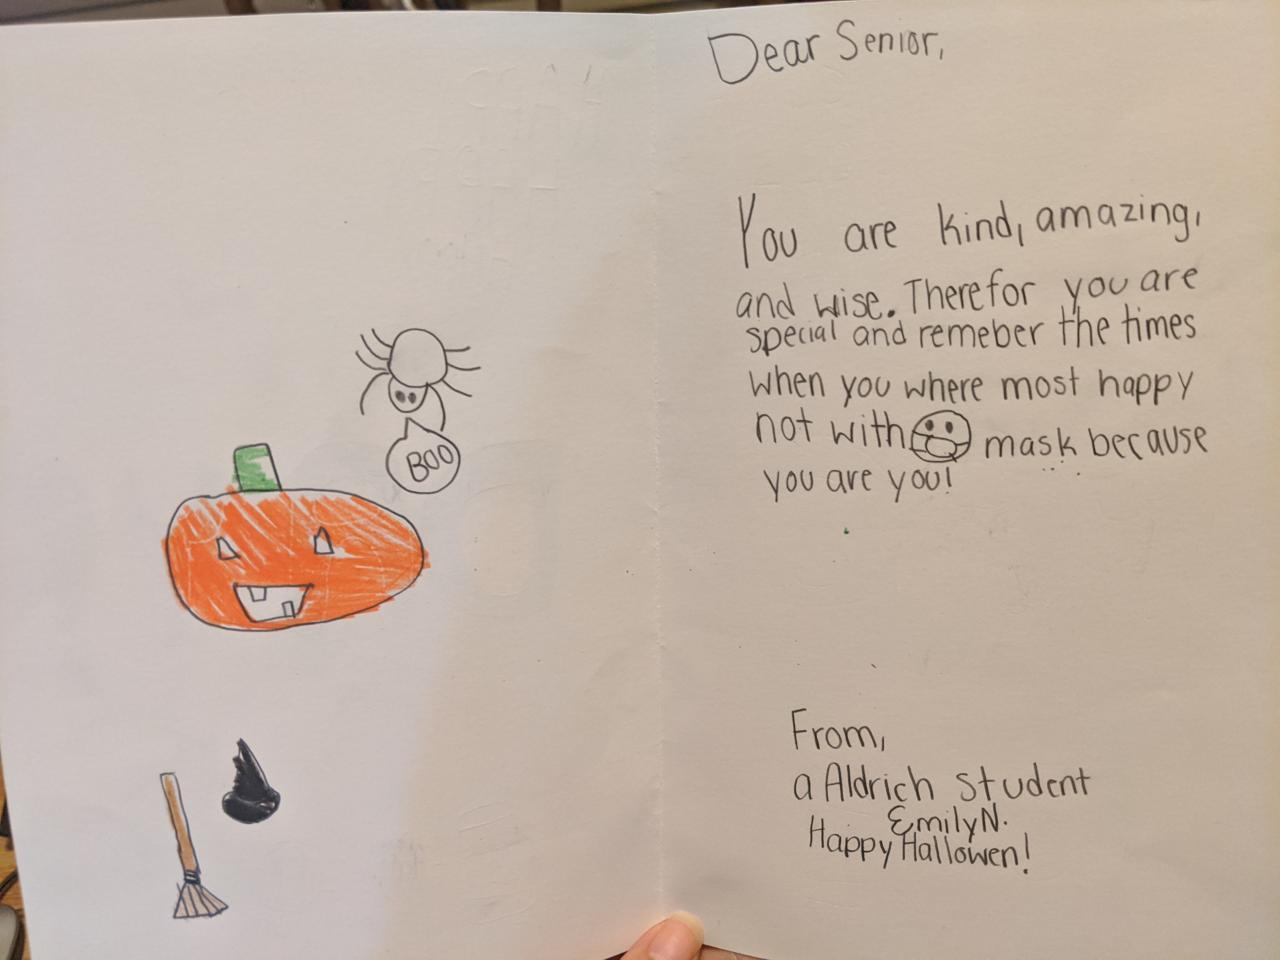 Dear Senior,
You are kind, amazing,
and wise. Therefor you are
special and remeber the times
when you where most happy
not with mask because
you are you!
BOO
From,
a Aldrich student
Emily N.
Happy Hallowen!